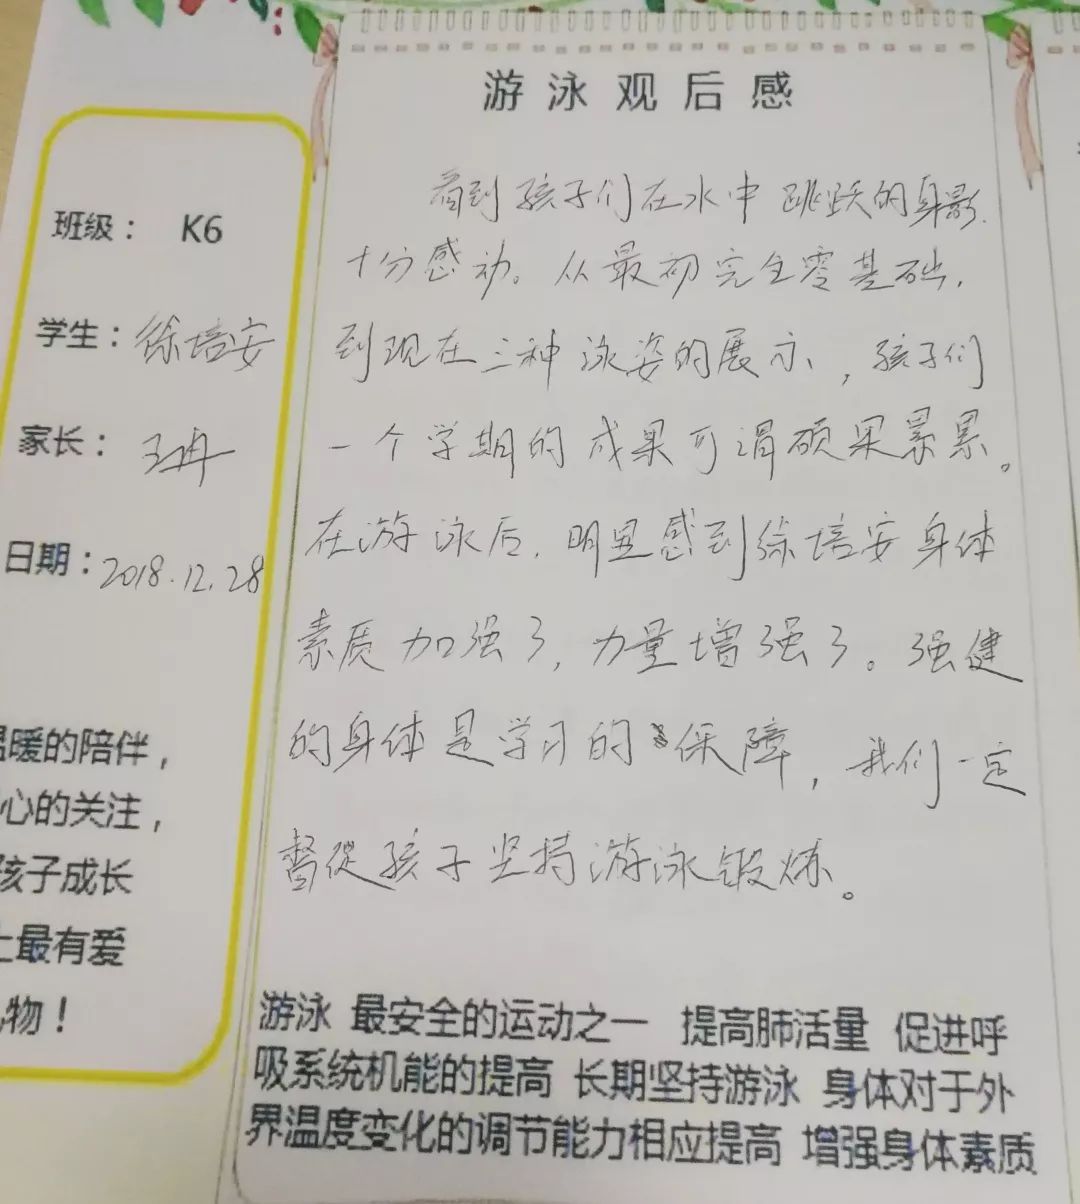 班级： K6
学生：徐培安
家长： 王冉
日期：2018.12.28
温暖的陪伴，
心的关注，
孩子成长
上最有爱
礼物！
游泳观后感
看到孩子们在水中跳跃的身影，
十分感动。从最初完全零基础，
到现在三种泳姿的展示，孩子们
一个学期的成果可谓硕果累累。
在游泳后，明显感到徐培安身体
素质加强了，力量增强了。强健
的身体是学习的保障，我们一定
督促孩子坚持游泳锻炼。
游泳 最安全的运动之一 提高肺活量 促进呼
吸系统机能的提高 长期坚持游泳 身体对于外
界温度变化的调节能力相应提高 增强身体素质